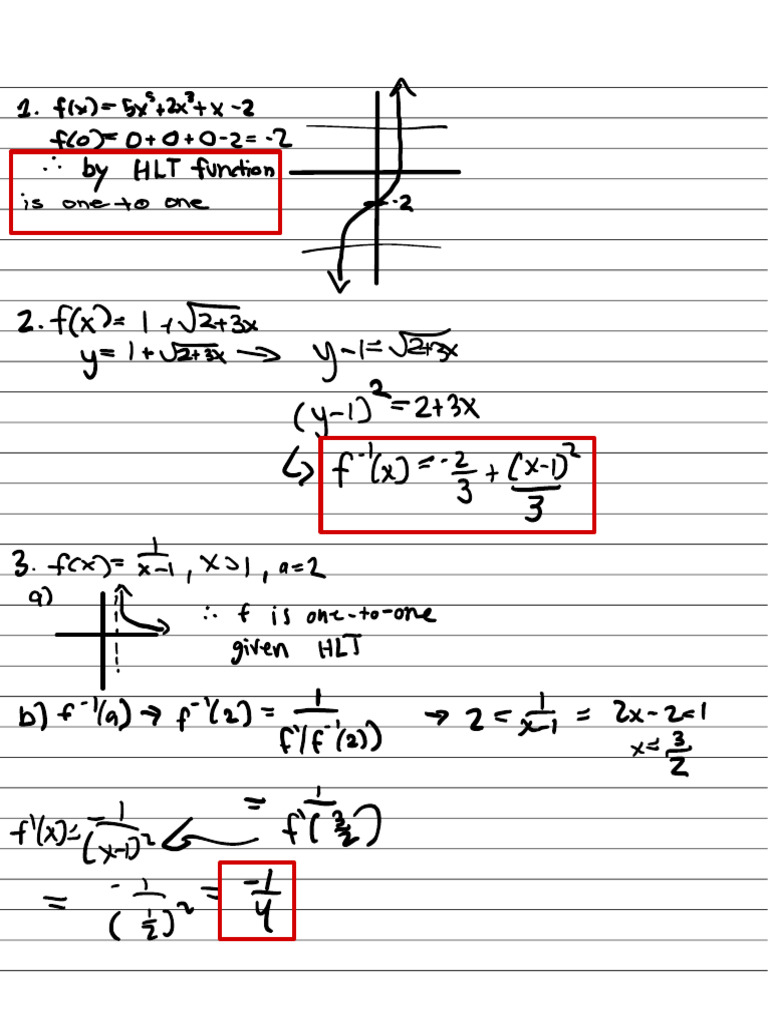 1. f(x) = 5x⁵+2x³+x-2
f(0) = 0+0+0-2 = -2
∴ by HLT function
is one-to one
-2
2. f(x) = 1+√2+3x
y = 1+√2+3x → y-1 = √2+3x
(y-1)² = 2+3x
↳ f⁻¹(x) = -2/3 + (x-1)²/3
3. f(x) = 1/(x-1), x>1, a=2
a)
∴ f is one-to-one
given HLT
b) f⁻¹(a) → f⁻¹(2) = 1/f'(f⁻¹(2)) → 2 = 1/(x-1) = 2x-2=1
x = 3/2
f'(x) = -1/(x-1)² ← = 1/f'(3/2)
= -1/(1/2)² = -1/4